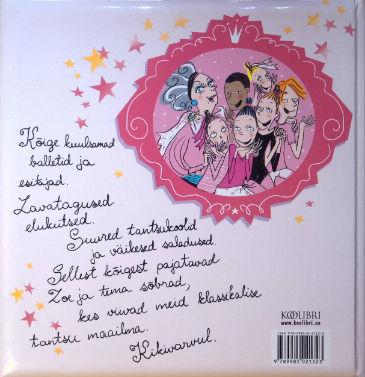 Kõige kuulsamad
balletid ja
esitajad.
Lavatagused
elukutsed.
Suured tantsukoolid
ja väikesed saladused.
Sellest kõigest pajatavad
Zoe ja tema sõbrad,
kes viivad meid klassikalise
tantsu maailma.
Kikivarvul.
KOOLIBRI
www.koolibri.ee
9789985021323